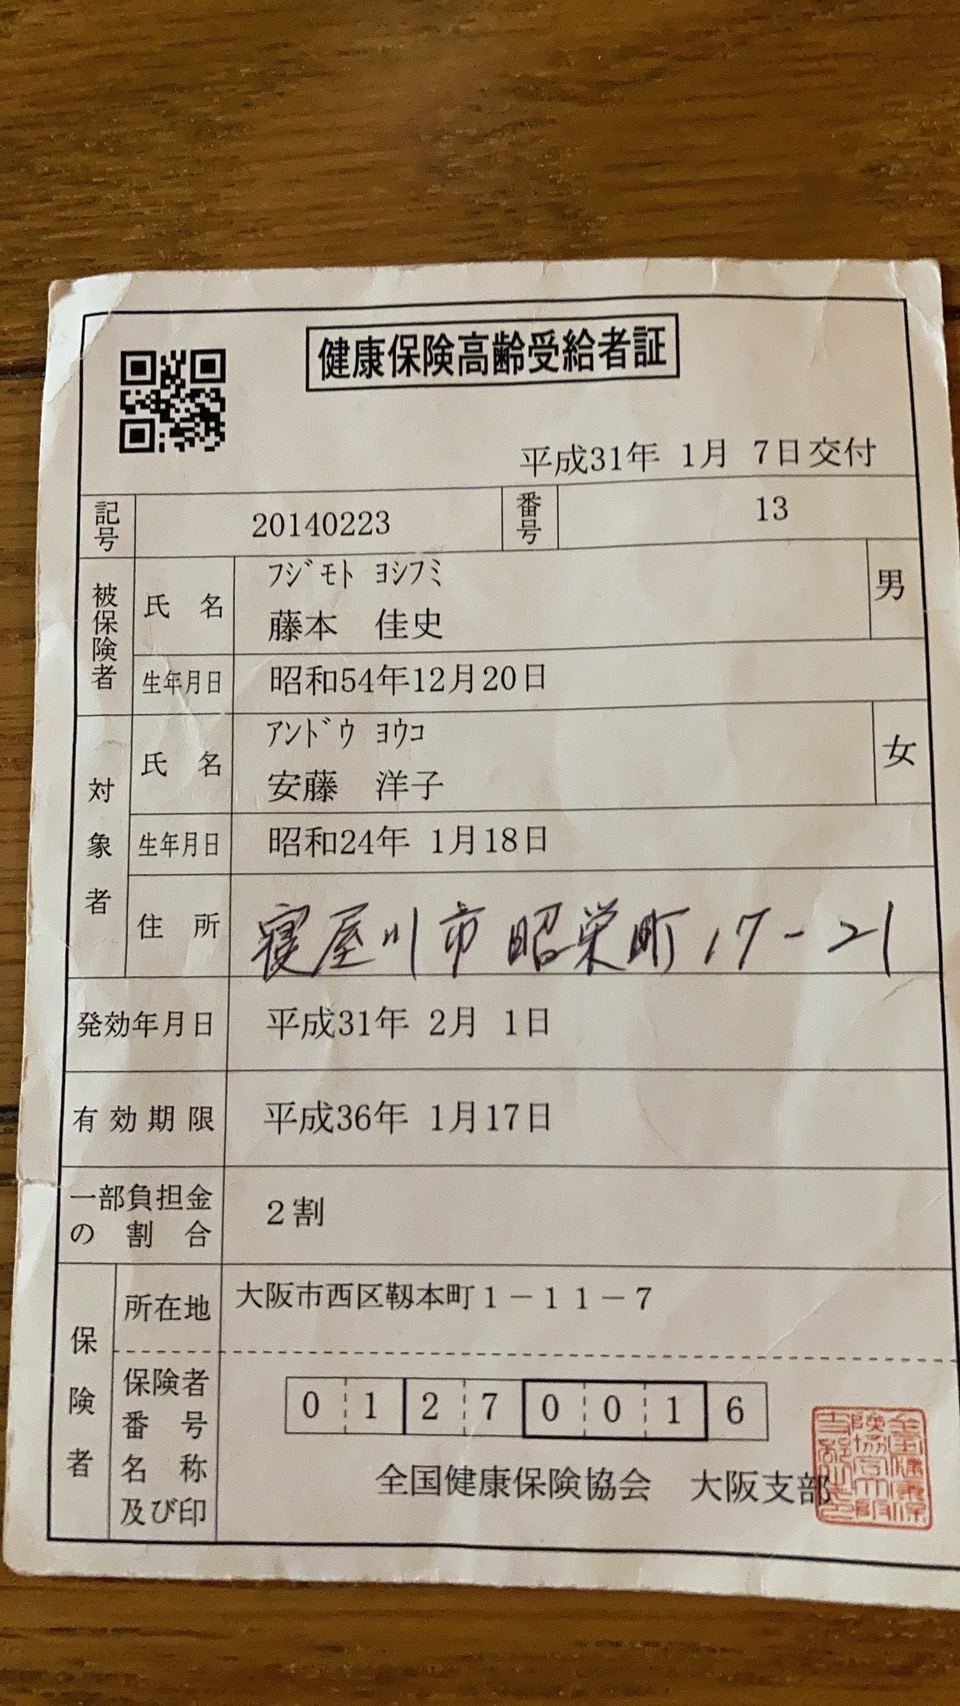 健康保険高齢受給者証
平成31年 1月 7日交付
記号 20140223 番号 13
被保険者
氏名 フジモト ヨシフミ
藤本 佳史 男
生年月日 昭和54年12月20日
対象者
氏名 アンドウ ヨウコ
安藤 洋子 女
生年月日 昭和24年 1月18日
住所 寝屋川市昭栄町17-21
発効年月日 平成31年 2月 1日
有効期限 平成36年 1月17日
一部負担金の割合 2割
保険者
所在地 大阪市西区靱本町1-11-7
保険者番号 01270016
名称及び印 全国健康保険協会 大阪支部